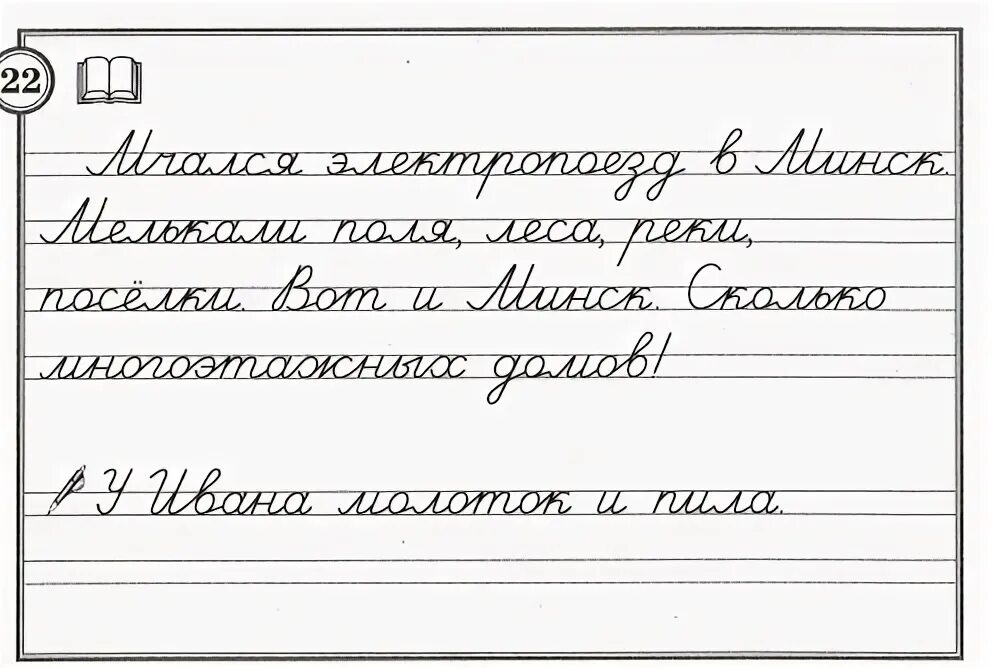 22
Мчался электропоезд в Минск.
Мелькали поля, леса, реки,
посёлки. Вот и Минск. Сколько
многоэтажных домов!
У Ивана молоток и пила.